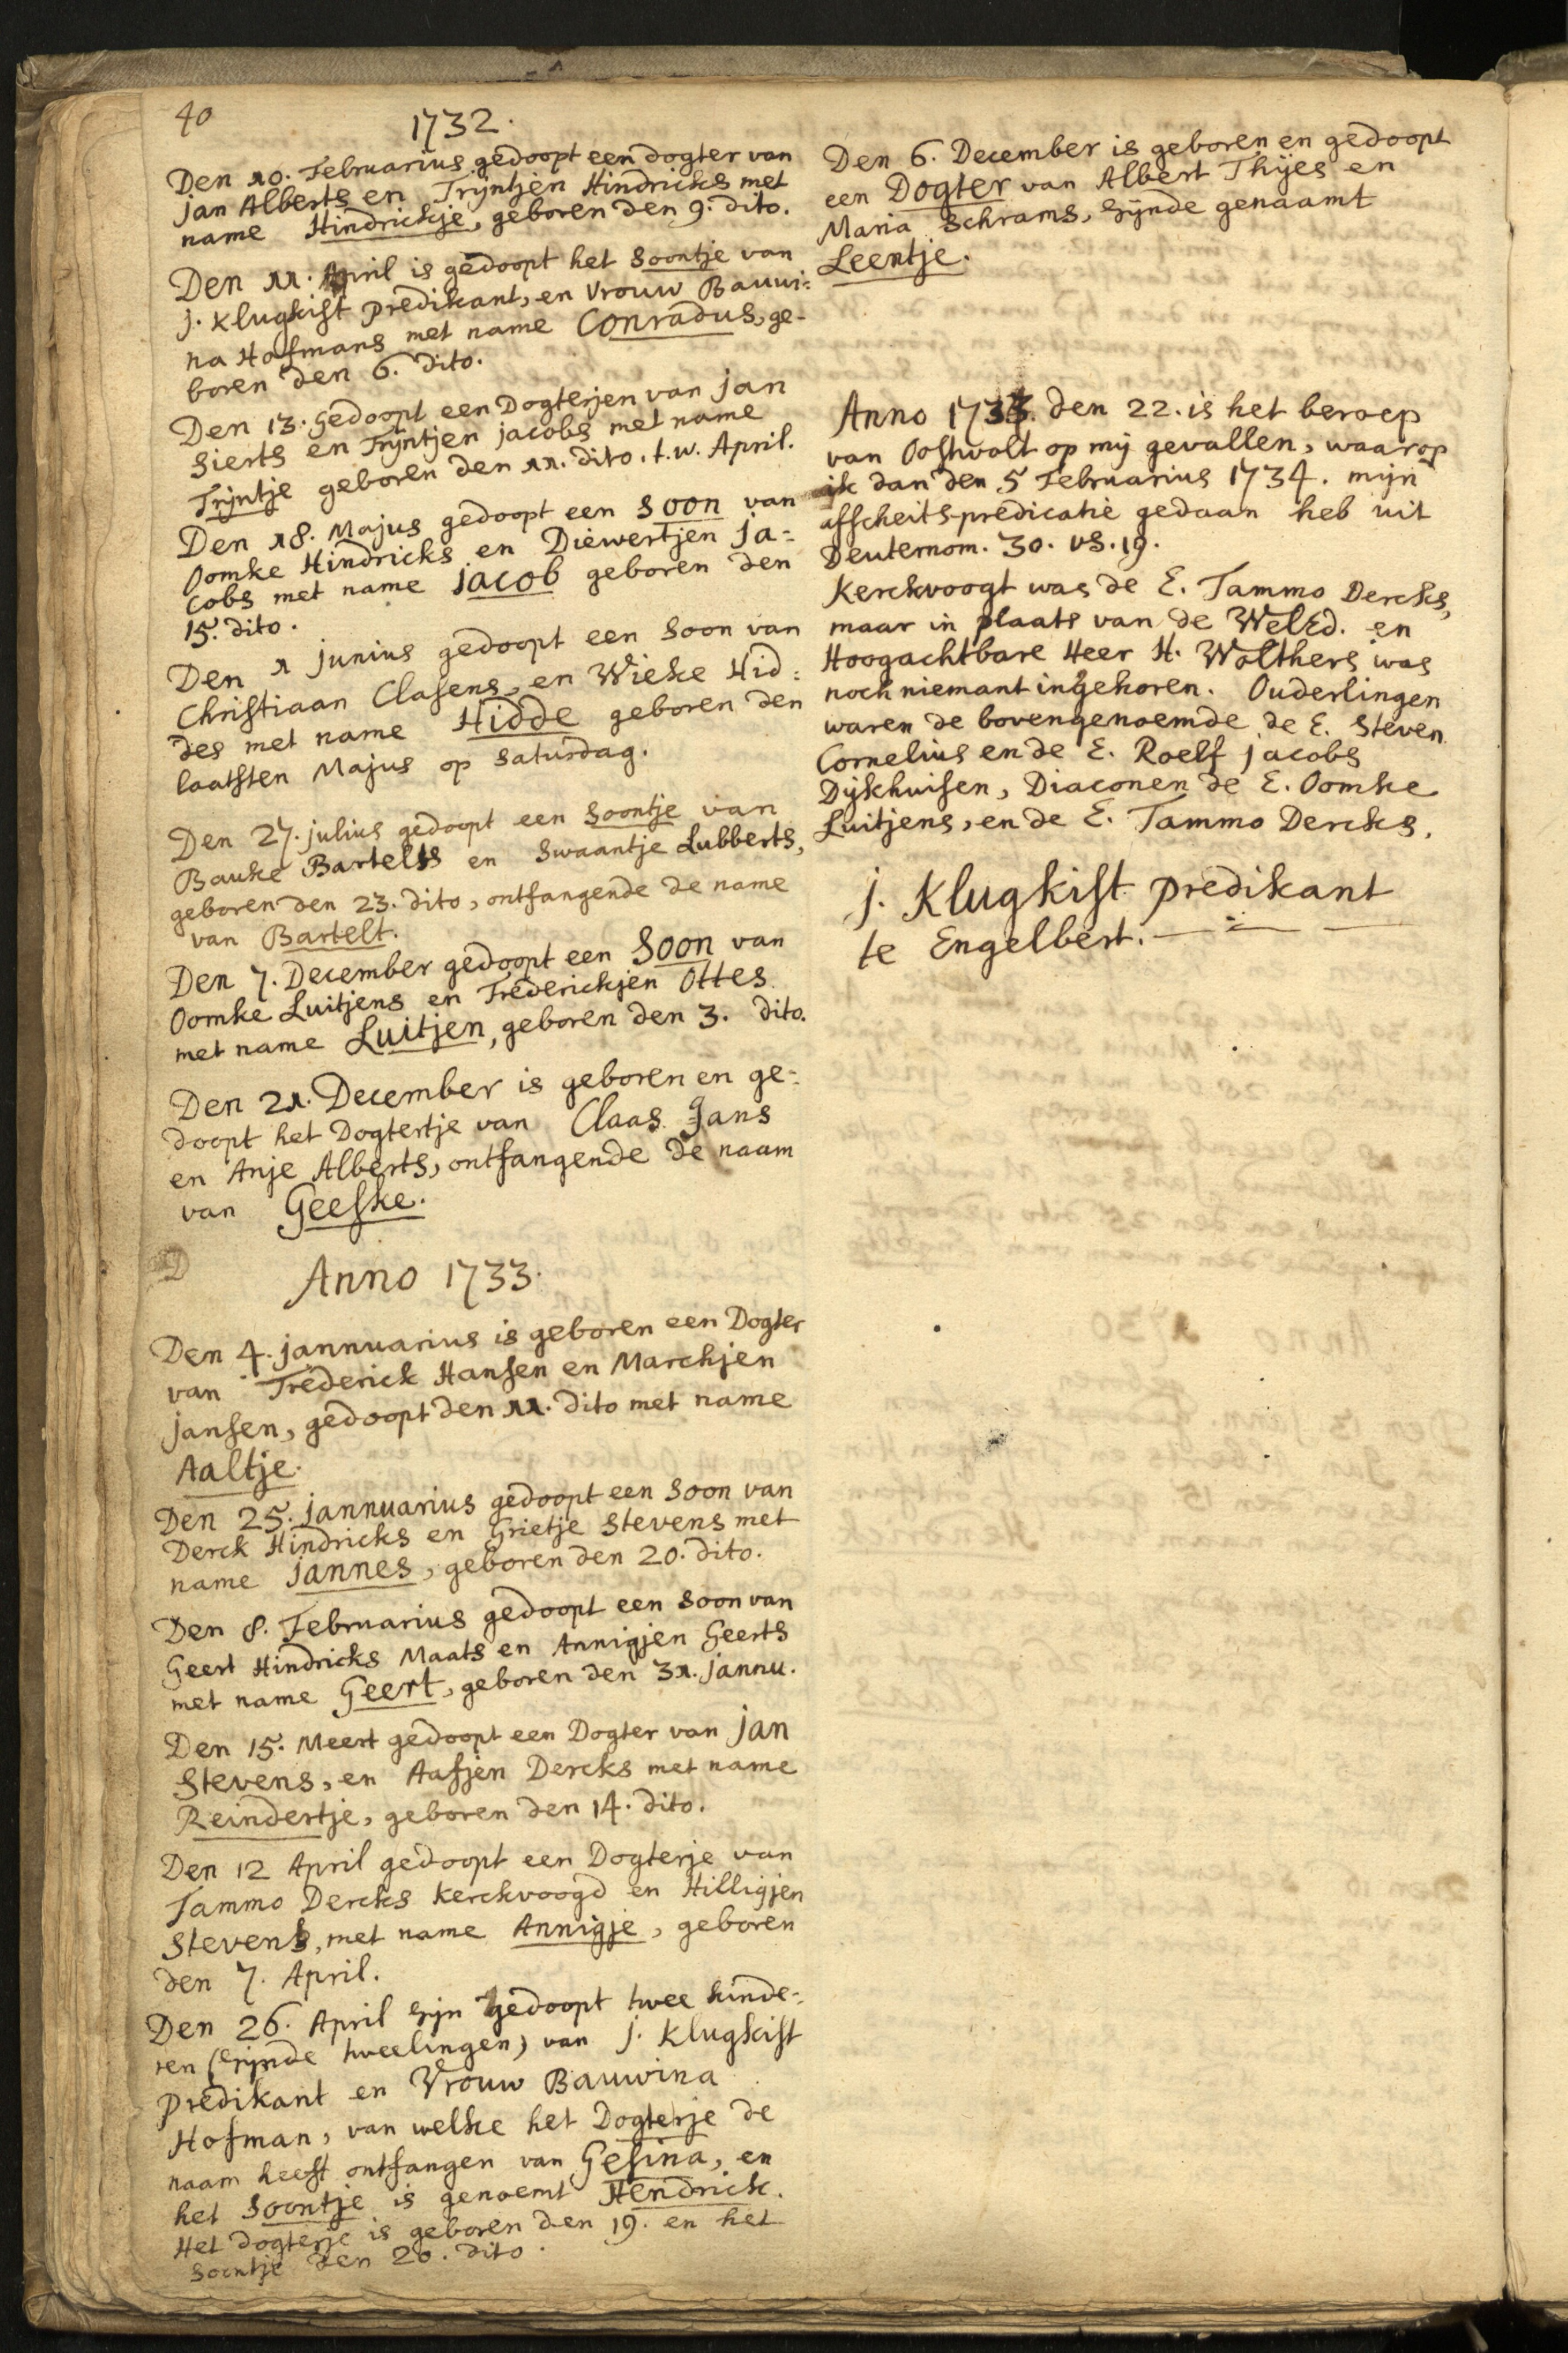 40
1732.
Den 10. Februarius gedoopt een dogter van
Jan Alberts en Trijntjen Hindricks met
name Hindrickje, geboren den 9. dito.
Den 11. April is gedoopt het Soontje van
J. Klugkist predikant, en Vrouw Bauwi=
na Hofmans met name Conradus, ge-
boren den 6. dito.
Den 13. gedoopt een Dogterjen van Jan
Sierts en Trijntjen Jacobs met name
Trijntje geboren den 11. dito. t.w. April.
Den 18. Majus gedoopt een Soon van
Oomke Hindricks en Diewertjen Ja=
cobs met name Jacob geboren den
15. dito.
Den 1 Junius gedoopt een Soon van
Christiaan Clasens, en Wieke Hid=
des met name Hidde geboren den
laatsten Majus op Saturdag.
Den 27. Julius gedoopt een Soontje van
Bauke Bartels en Swaantje Lubberts,
geboren den 23. dito, ontfangende de name
van Bartelt.
Den 7. December gedoopt een Soon van
Oomke Luitjens en Frederickjen Ottes
met name Luitjen, geboren den 3. dito.
Den 21. December is geboren en ge=
doopt het Dogtertje van Claas Jans
en Anje Alberts, ontfangende de naam
van Geeske.
Anno 1733.
Den 4. Jannuarius is geboren een Dogter
van Frederick Hansen en Marchjen
Jansen, gedoopt den 11. dito met name
Aaltje.
Den 25. Jannuarius gedoopt een Soon van
Derck Hindricks en Grietje Stevens met
name Jannes, geboren den 20. dito.
Den 8. Februarius gedoopt een Soon van
Geert Hindricks Maats en Annigjen Geerts
met name Geert, geboren den 31. Jannu.
Den 15. Meert gedoopt een Dogter van Jan
Stevens, en Aafjen Dercks met name
Reindertje, geboren den 14. dito.
Den 12 April gedoopt een Dogterje van
Tammo Dercks Kerckvoogd en Hilligjen
Stevens, met name Annigje, geboren
den 7. April.
Den 26. April sijn gedoopt twee kinde=
ren (sijnde tweelingen) van J. Klugkist
predikant en Vrouw Bauwina
Hofman, van welke het Dogterje de
naam heeft ontfangen van Gesina, en
het Soontje is genoemt Hendrick.
Het dogterje is geboren den 19. en het
Soontje den 20. dito.
Den 6. December is geboren en gedoopt
een Dogter van Albert Thijes en
Maria Schrams, sijnde genaamt
Leentje.
Anno 1733. den 22. is het beroep
van Oostwolt op mij gevallen, waarop
ik dan den 5 Februarius 1734. mijn
affcheits-predicatie gedaan heb uit
Deuternom. 30. vs. 19.
Kerckvoogt was de E. Tammo Dercks,
maar in plaats van de WelEd. en
Hoogachtbare Heer H. Wolthers was
noch niemant ingekoren. Ouderlingen
waren de bovengenoemde de E. Steven
Cornelius en de E. Roelf Jacobs
Dijkhuisen, Diaconen de E. Oomke
Luitjens, en de E. Tammo Dercks.
J. Klugkist predikant
te Engelbert.